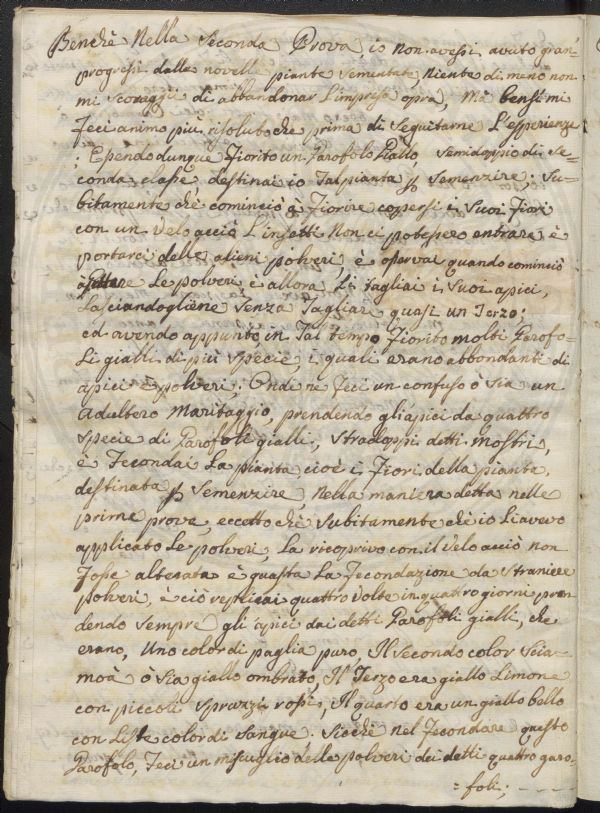 Benchè Nella Seconda Prova io non avessi avuto gran
progressi dalle novelle piante sementate, Niente di meno non
mi scoraggij di abbandonar l'impresa opra, Mà bensi mi
feci animo piu risoluto che prima di seguitarne L'esperienze
; Essendo dunque fiorito un Garofolo Giallo, semidoppio di se=
conda classe, destinai io Tal pianta p semenzire; Su=
bitamente chè cominciò à fiorire copersi i Suoi fiori
con un Velo acciò L'insetti Non ci potessero entrare è
portarci delle alieni polveri è osservai quando cominciò
a gettare Le polveri è allora Li tagliai i Suoi apici,
Lasciandogliene Senza Tagliare quasi un Terzo;
ed avendo appunto in Tal tempo fiorito molti Garofo=
Li gialli di più specie, i quali erano abbondanti di
apici è polveri; Onde ne feci un confuso ò Sia un
Adultero Maritaggio, prendendo gli apici da quattro
specie di Garofoli gialli, stradoppi detti Mostri,
è fecondai La pianta cioè i fiori della pianta,
destinata p Semenzire, Nella maniera detta nelle
prime prove, eccetto chè Subitamente chè io Li avevo
applicato Le polveri, La ricoprivo con il Velo acciò non
fosse alterata è guasta La fecondazione da straniere
polveri, è ciò replicai quattro Volte in quatro giorni pren
dendo Sempre gli apici dai detti Garofoli gialli, che
erano, Uno color di paglia puro, Il Secondo color Scia=
moà ò Sia giallo ombrato, Il Terzo era giallo Limone
con piccoli Sprazzi rossi, Il quarto era un giallo bello
con Liste color di Sangue. Siochè nel fecondare questo
Garofolo, feci un miscuglio delle polveri dei detti quattro garo=
=foli;